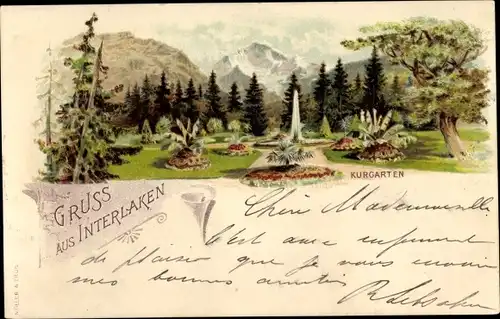 GRUSS
AUS INTERLAKEN
KURGARTEN
Chère Mademoiselle.
C'est avec infiniment
de plaisir que je vous envoie
mes bonnes amitiés